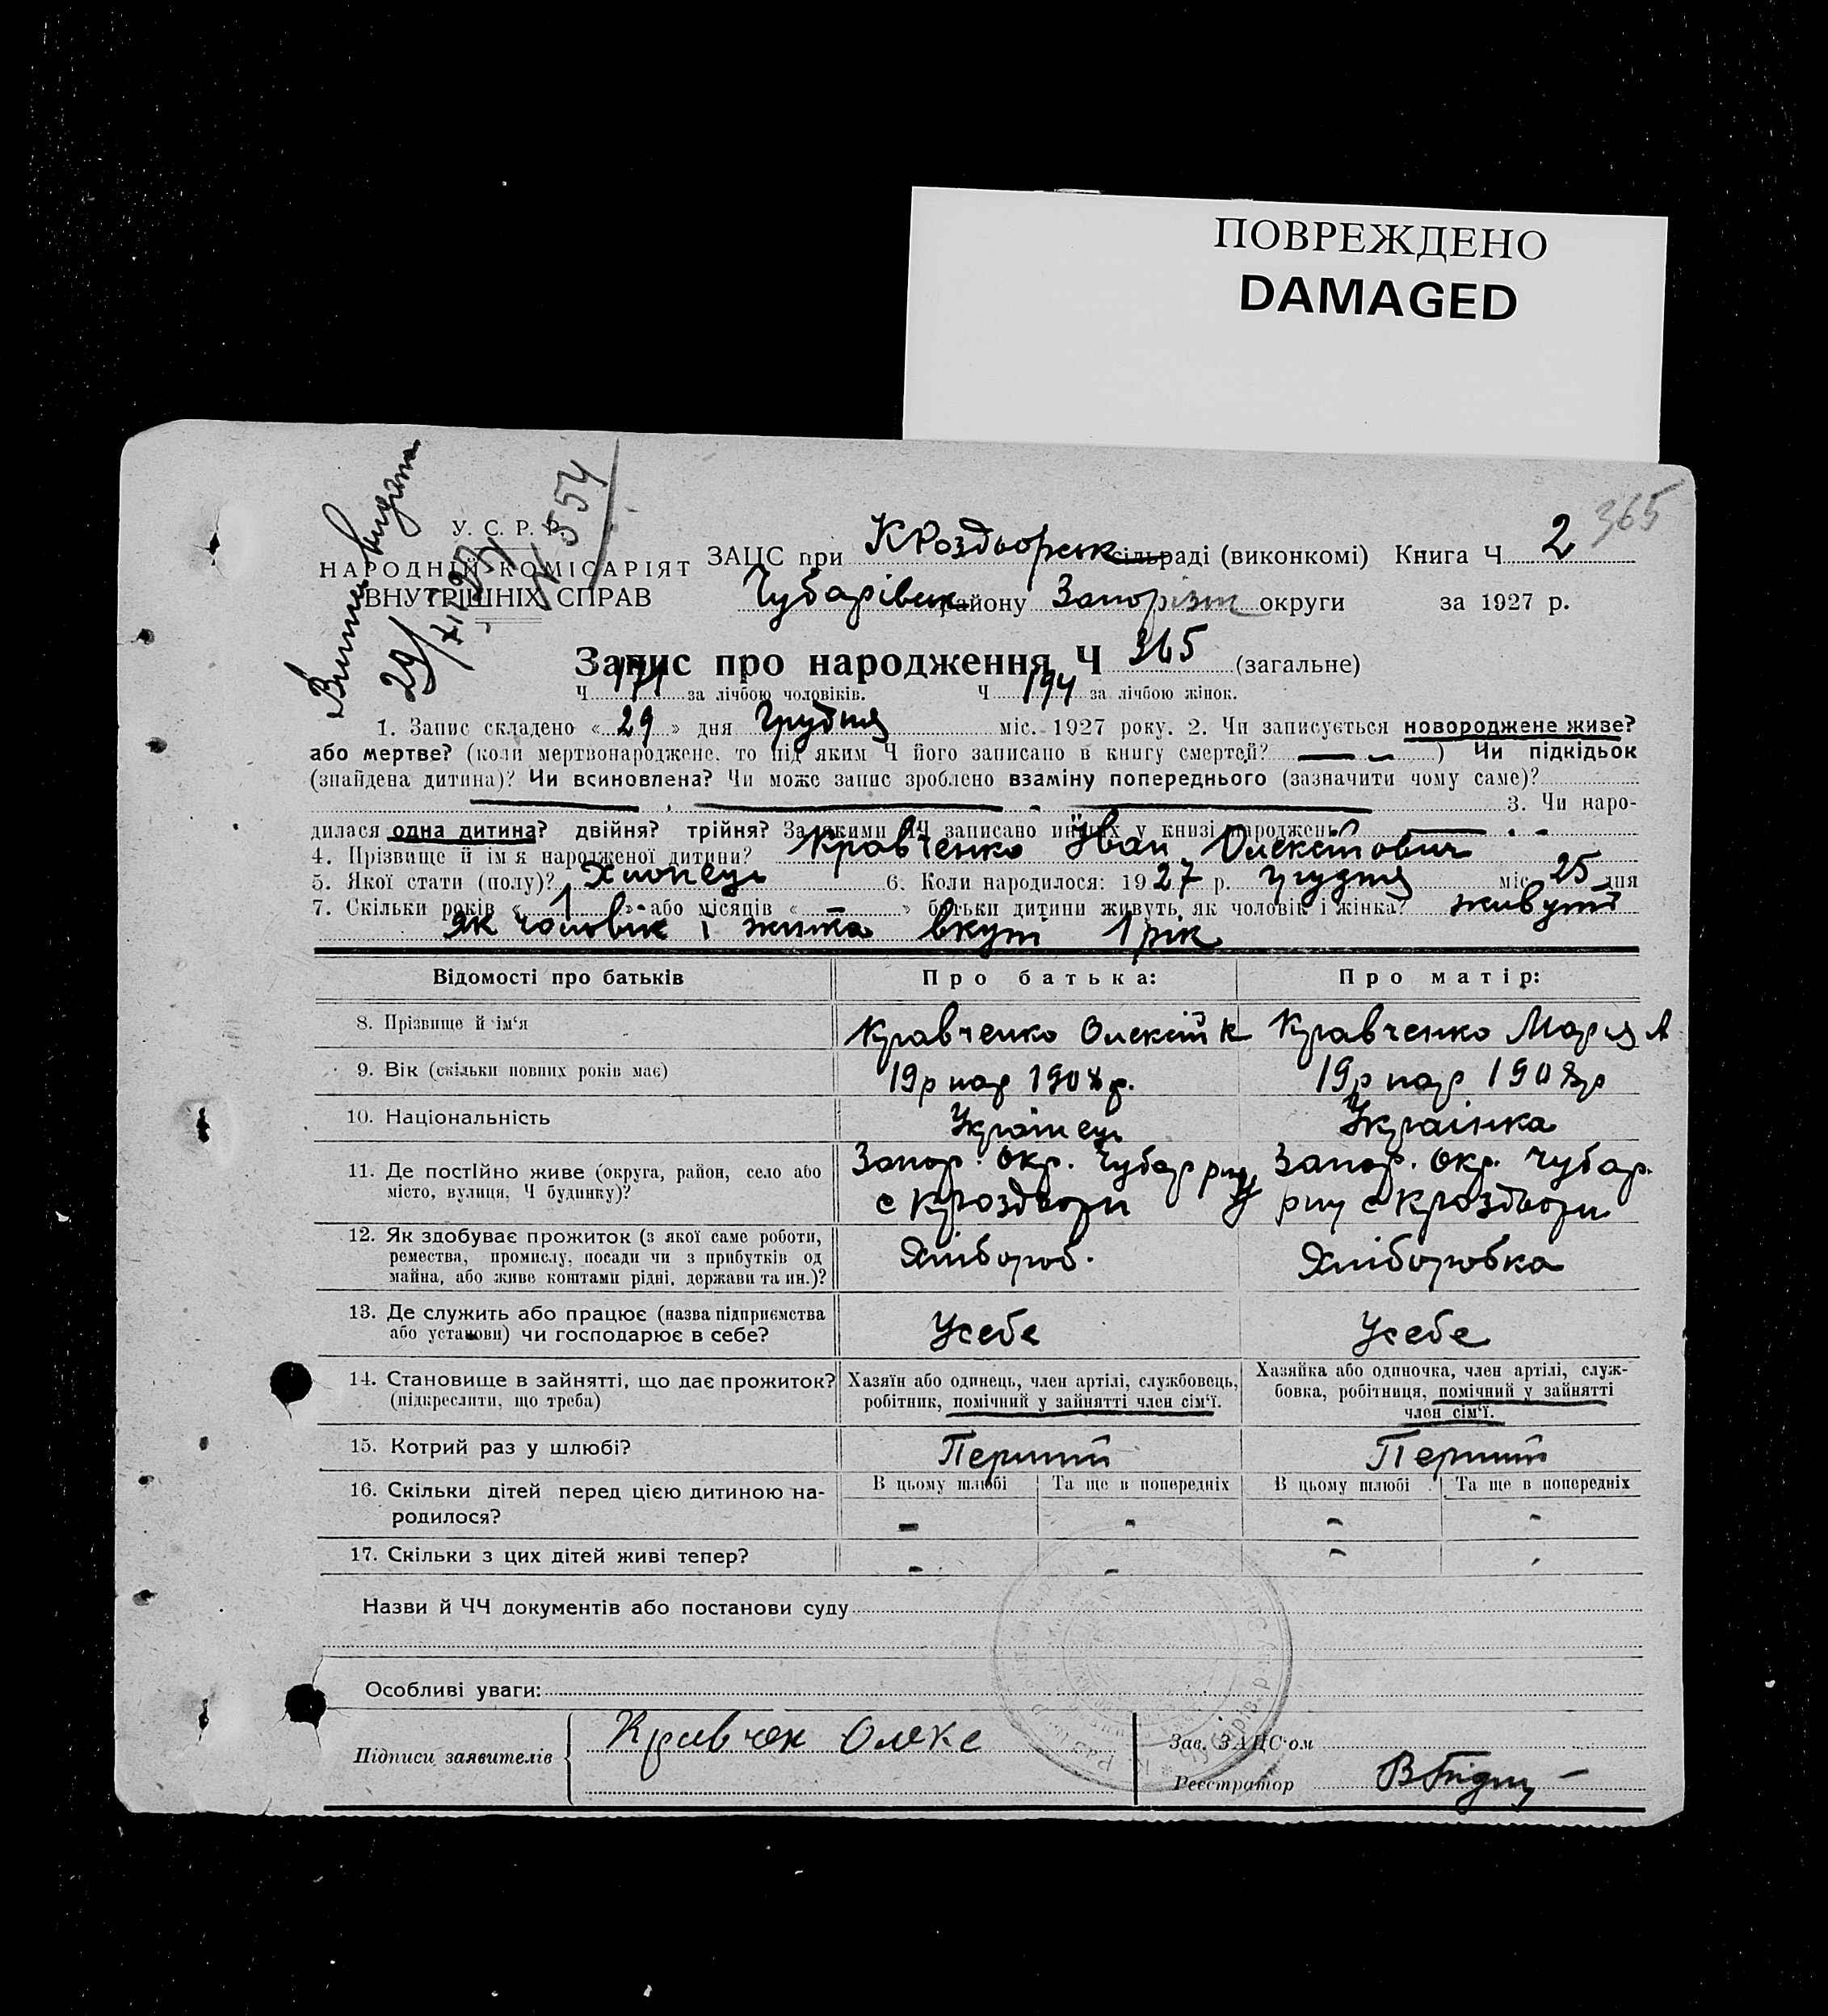 ПОВРЕЖДЕНО
DAMAGED
365
Випись видана
29/XII 27
N 554
У. С. Р. Р.
НАРОДНІЙ КОМІСАРІЯТ
ВНУТРІШНІХ СПРАВ
ЗАЦС при КРоздворськ сільраді (виконкомі) Книга Ч 2
Чубарівськ району Запорізьк округи за 1927 р.
Запис про народження Ч 365 (загальне)
Ч 171 за лічбою чоловіків. Ч 194 за лічбою жінок.
1. Запис складено « 29 » дня Грудня міс. 1927 року. 2. Чи записується новороджене живе?
або мертве? (коли мертвонароджене, то під яким Ч його записано в книгу смертей? — — ) Чи підкідьок
(знайдена дитина)? Чи всиновлена? Чи може запис зроблено взаміну попереднього (зазначити чому саме)?
3. Чи наро-
дилася одна дитина? двійня? трійня? За якими ЧЧ записано инших у книзі народжень?
4. Прізвище й ім'я народженої дитини? Кравченко Іван Олексійович
5. Якої стати (полу)? Хлопець 6. Коли народилося: 1927 р. грудня міс. 25 дня
7. Скільки років « 1 » або місяців « — » батьки дитини живуть, як чоловік і жінка? живуть
як чоловік і жинка вкупі 1 рік
Відомості про батьків Про батька: Про матір:
8. Прізвище й ім'я Кравченко Олексій К Кравченко Мария А
9. Вік (скільки повних років має) 19р нар 1908 р. 19р нар 1908 р
10. Національність Українець Українка
11. Де постійно живе (округа, район, село або
місто, вулиця, Ч будинку)?
Запор. окр. Чубар рну
с Кроздвори
Запор. окр. Чубар.
рну с Кроздвори
12. Як здобуває прожиток (з якої саме роботи,
ремества, промислу, посади чи з прибутків од
майна, або живе коштами рідні, держави та ин.)?
Хлібороб. Хліборобка
13. Де служить або працює (назва підприємства
або установи) чи господарює в себе?
Усебе Усебе
14. Становище в зайнятті, що дає прожиток?
(підкреслити, що треба)
Хазяїн або одинець, член артілі, службовець,
робітник, помічний у зайнятті член сім'ї.
Хазяйка або одиночка, член артілі, служ-
бовка, робітниця, помічний у зайнятті
член сім'ї.
15. Котрий раз у шлюбі? Перший Перший
16. Скільки дітей перед цією дитиною на-
родилося?
В цьому шлюбі Та ще в попередніх В цьому шлюбі Та ще в попередніх
- - - -
17. Скільки з цих дітей живі тепер? - - - -
Назви й ЧЧ документів або постанови суду
Особливі уваги:
Підписи заявителів Кравчен Олекс
Зав. ЗАЦС'ом
Реєстратор